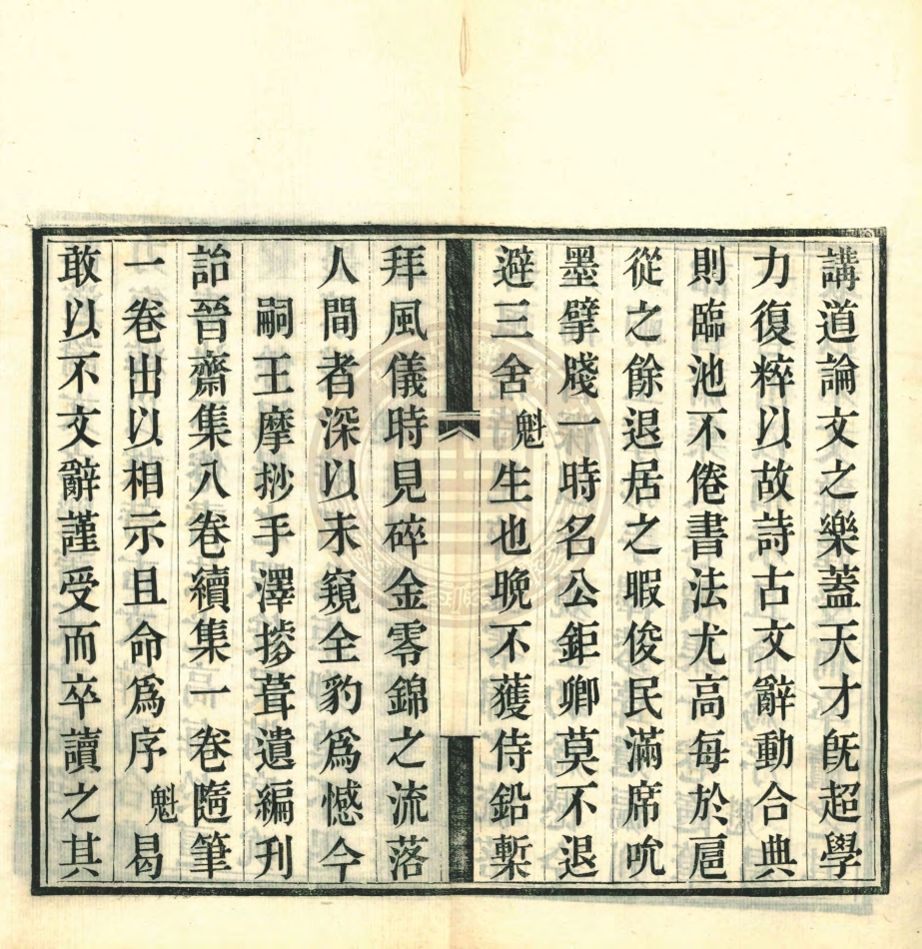 講道論文之樂蓋天才旣超學
力復粹以故詩古文辭動合典
則臨池不倦書法尤高每於扈
從之餘退居之暇俊民滿席吮
墨擘牋一時名公鉅卿莫不退
避三舍魁生也晚不獲侍鉛槧
拜風儀時見碎金零錦之流落
人間者深以未窺全豹爲憾今
嗣王摩抄手澤掞葺遺編刋
詒晉齋集八卷續集一卷隨筆
一卷出以相示且命爲序魁曷
敢以不文辭謹受而卒讀之其